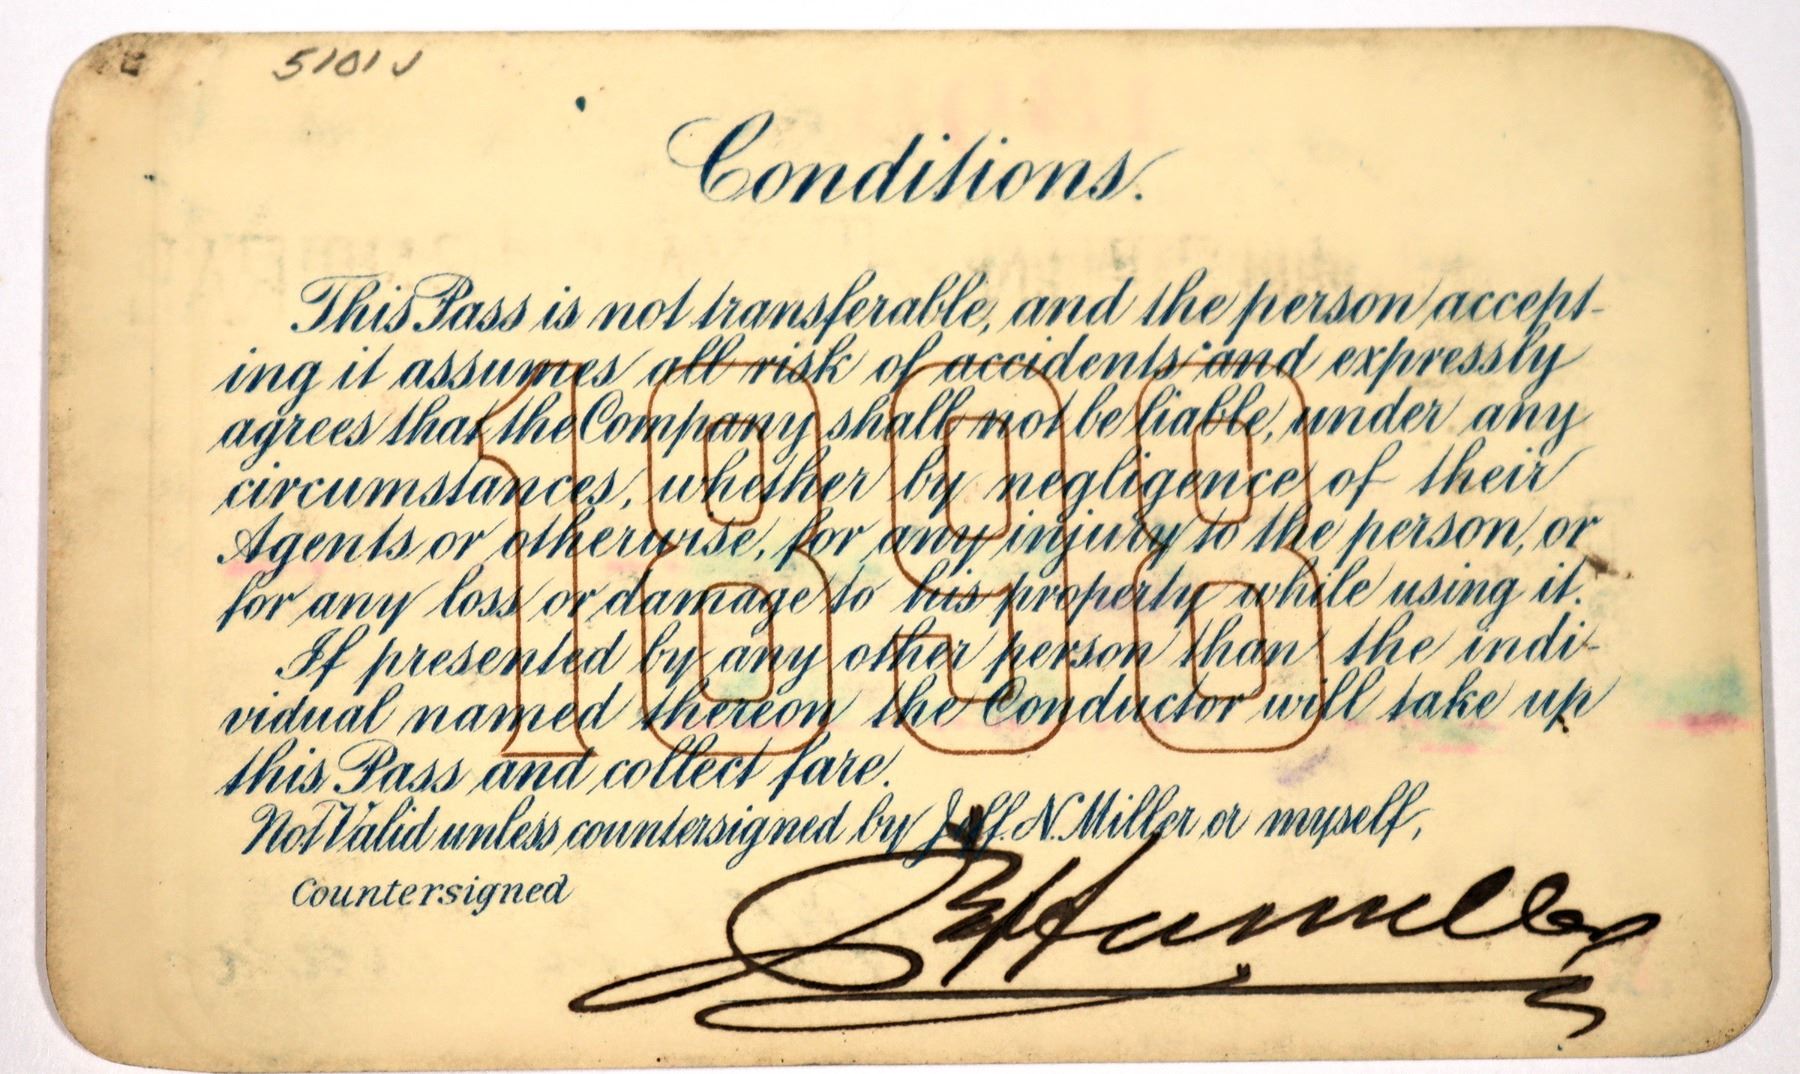 5101
Conditions.
This Pass is not transferable, and the person accept-
ing it assumes all risk of accidents and expressly
agrees that the Company shall not be liable, under any
circumstances, whether by negligence of their
Agents or otherwise, for any injury to the person, or
for any loss or damage to his property while using it.
If presented by any other person than the indi-
vidual named thereon the Conductor will take up
this Pass and collect fare.
Not Valid unless countersigned by Jeff. N. Miller or myself,
Countersigned
1898